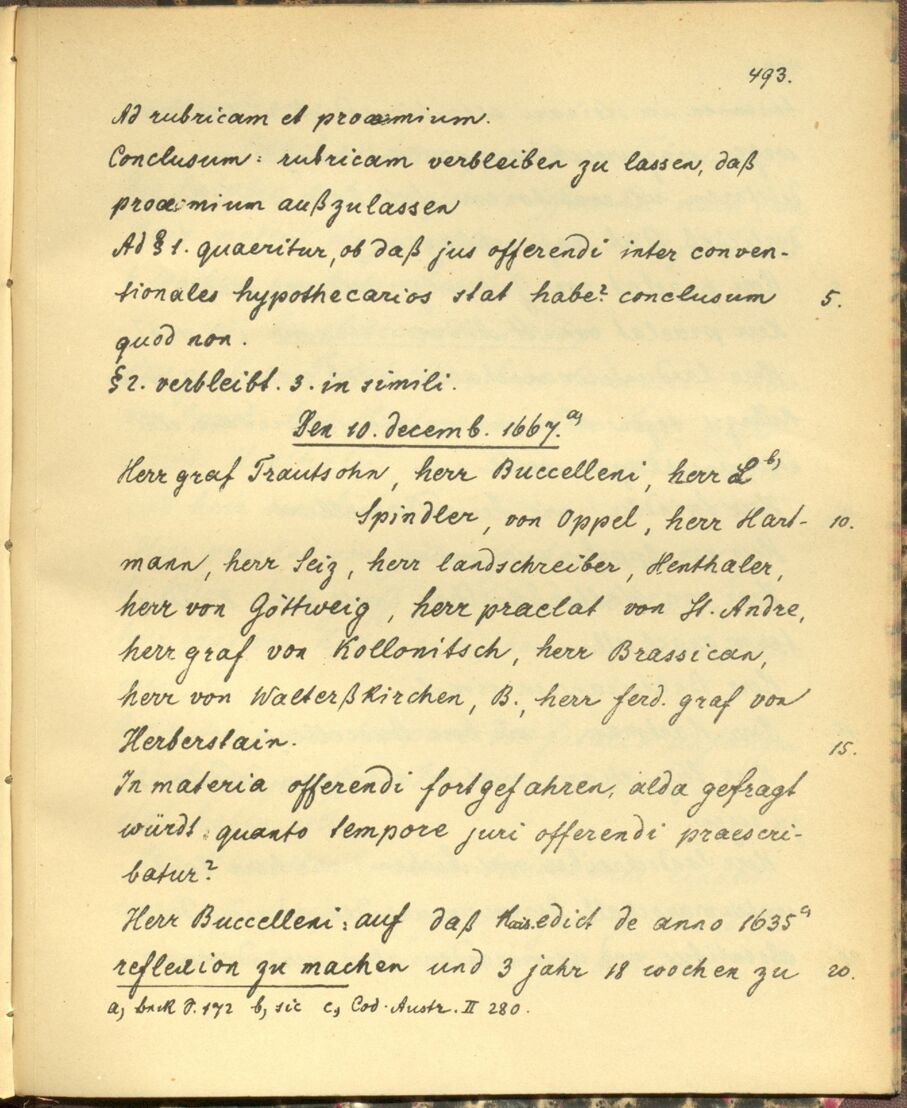 493.
Ad rubricam et prooemium.
Conclusum: rubricam verbleiben zu lassen, daß
prooemium außzulassen
Ad § 1. quaeritur, ob daß jus offerendi inter conven-
tionales hypothecarios stat habe? conclusum 5.
quod non.
§ 2. verbleibt. 3. in simili.
Den 10. decemb. 1667. a)
Herr graf Trautsohn, herr Buccelleni, herr L b)
Spindler, von Oppel, herr Hart- 10.
mann, herr Seiz, herr landschreiber, Henthaler,
herr von Göttweig, herr praelat von St. Andre,
herr graf von Kollonitsch, herr Brassican,
herr von Walterßkirchen, B., herr ferd. graf von
Herberstain. 15.
In materia offerendi fortgefahren, alda gefragt
würdt: quanto tempore juri offerendi praescri-
batur?
Herr Buccelleni: auf daß Kais. edict de anno 1635 c)
reflexion zu machen und 3 jahr 18 wochen zu 20.
a) P. 172 b) sic c) Cod. Austr. II 280.